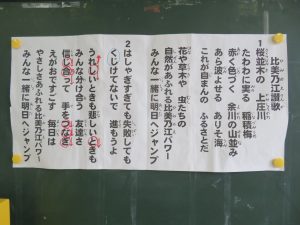 比美乃江讃歌
1
桜並木の 上庄川
たわわに実る 稲積梅
赤く色づく 余川の山並み
あら波よせる ありそ海
これが自まんの ふるさとだ
花や草木や 虫たちの
自然があふれる比美乃江パワー
みんな一緒に明日へジャンプ
2
はしゃぎすぎても失敗しても
くじけてないで 進もうよ
うれしいときも悲しいときも
みんな分け合う 友達さ
信じ合って 手をつなぎ
えがおですごす 毎日は
やさしさあふれる比美乃江パワー
みんな一緒に明日へジャンプ